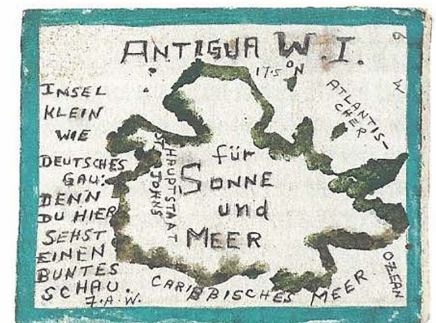 ANTIGUA W.I.
17.5°N
6
W
ATLANTIS-
CHER
OZEAN
INSEL
KLEIN
WIE
DEUTSCHES
GAU:
DENN
DU HIER
SEHST
EINEN
BUNTES
SCHAU.
J.A.W.
HAUPTSTAAT
ST. JOHNS
für
SONNE
und
MEER
CARIBBISCHES MEER